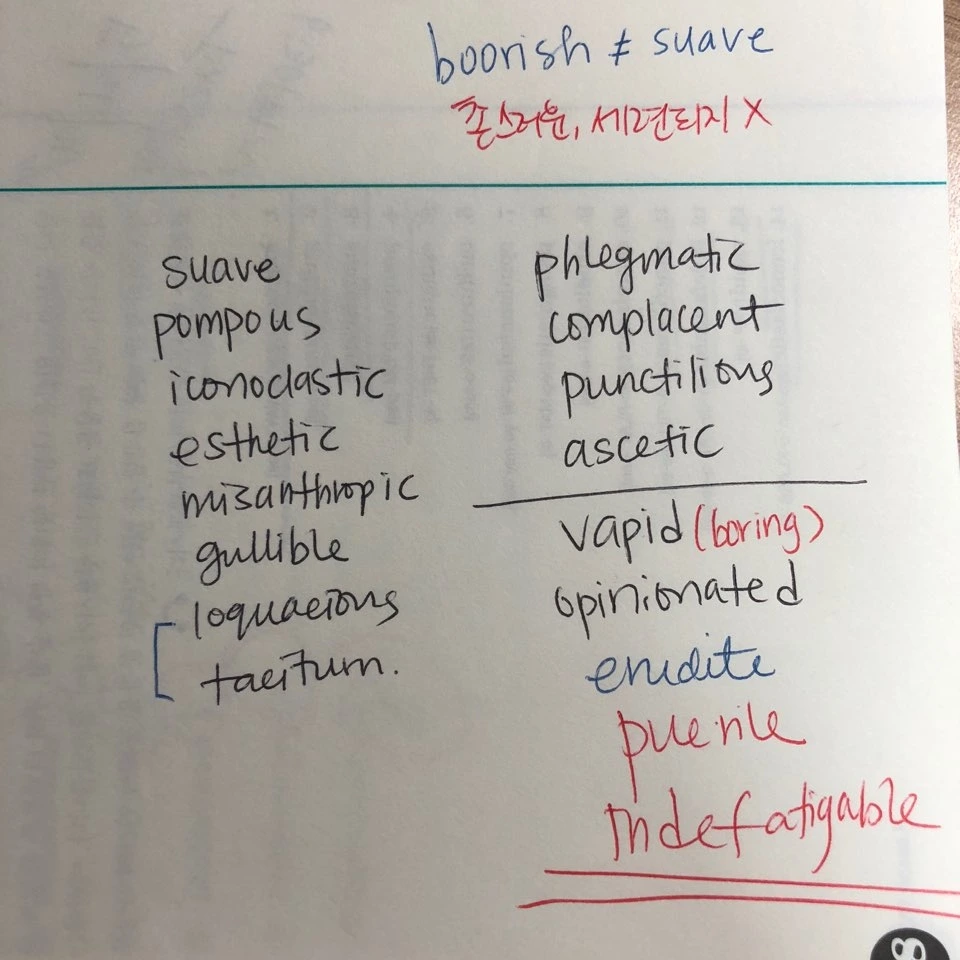 boorish ≠ suave
촌스러운, 세련되지 X
suave
pompous
iconoclastic
esthetic
misanthropic
gullible
loquacious
taciturn.
phlegmatic
complacent
punctilious
ascetic
vapid (boring)
opinionated
erudite
puerile
indefatigable